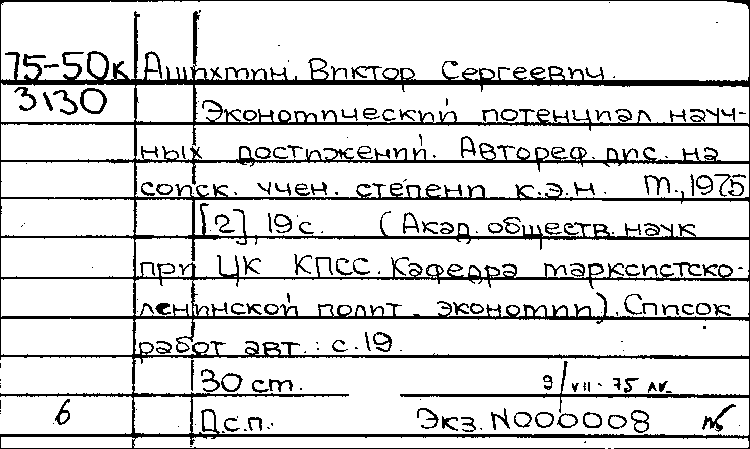 75-50к Ашихмин, Виктор Сергеевич.
3130 Экономический потенциал науч-
ных достижений. Автореф. дис. на
соиск. учен. степени к.э.н. М., 1975
[2], 19 с. (Акад. обществ. наук
при ЦК КПСС. Кафедра марксистско-
ленинской полит. экономии). Список
работ авт.: с. 19.
30 см. 9/VII-75
6 Д.с.п. Экз. N000008